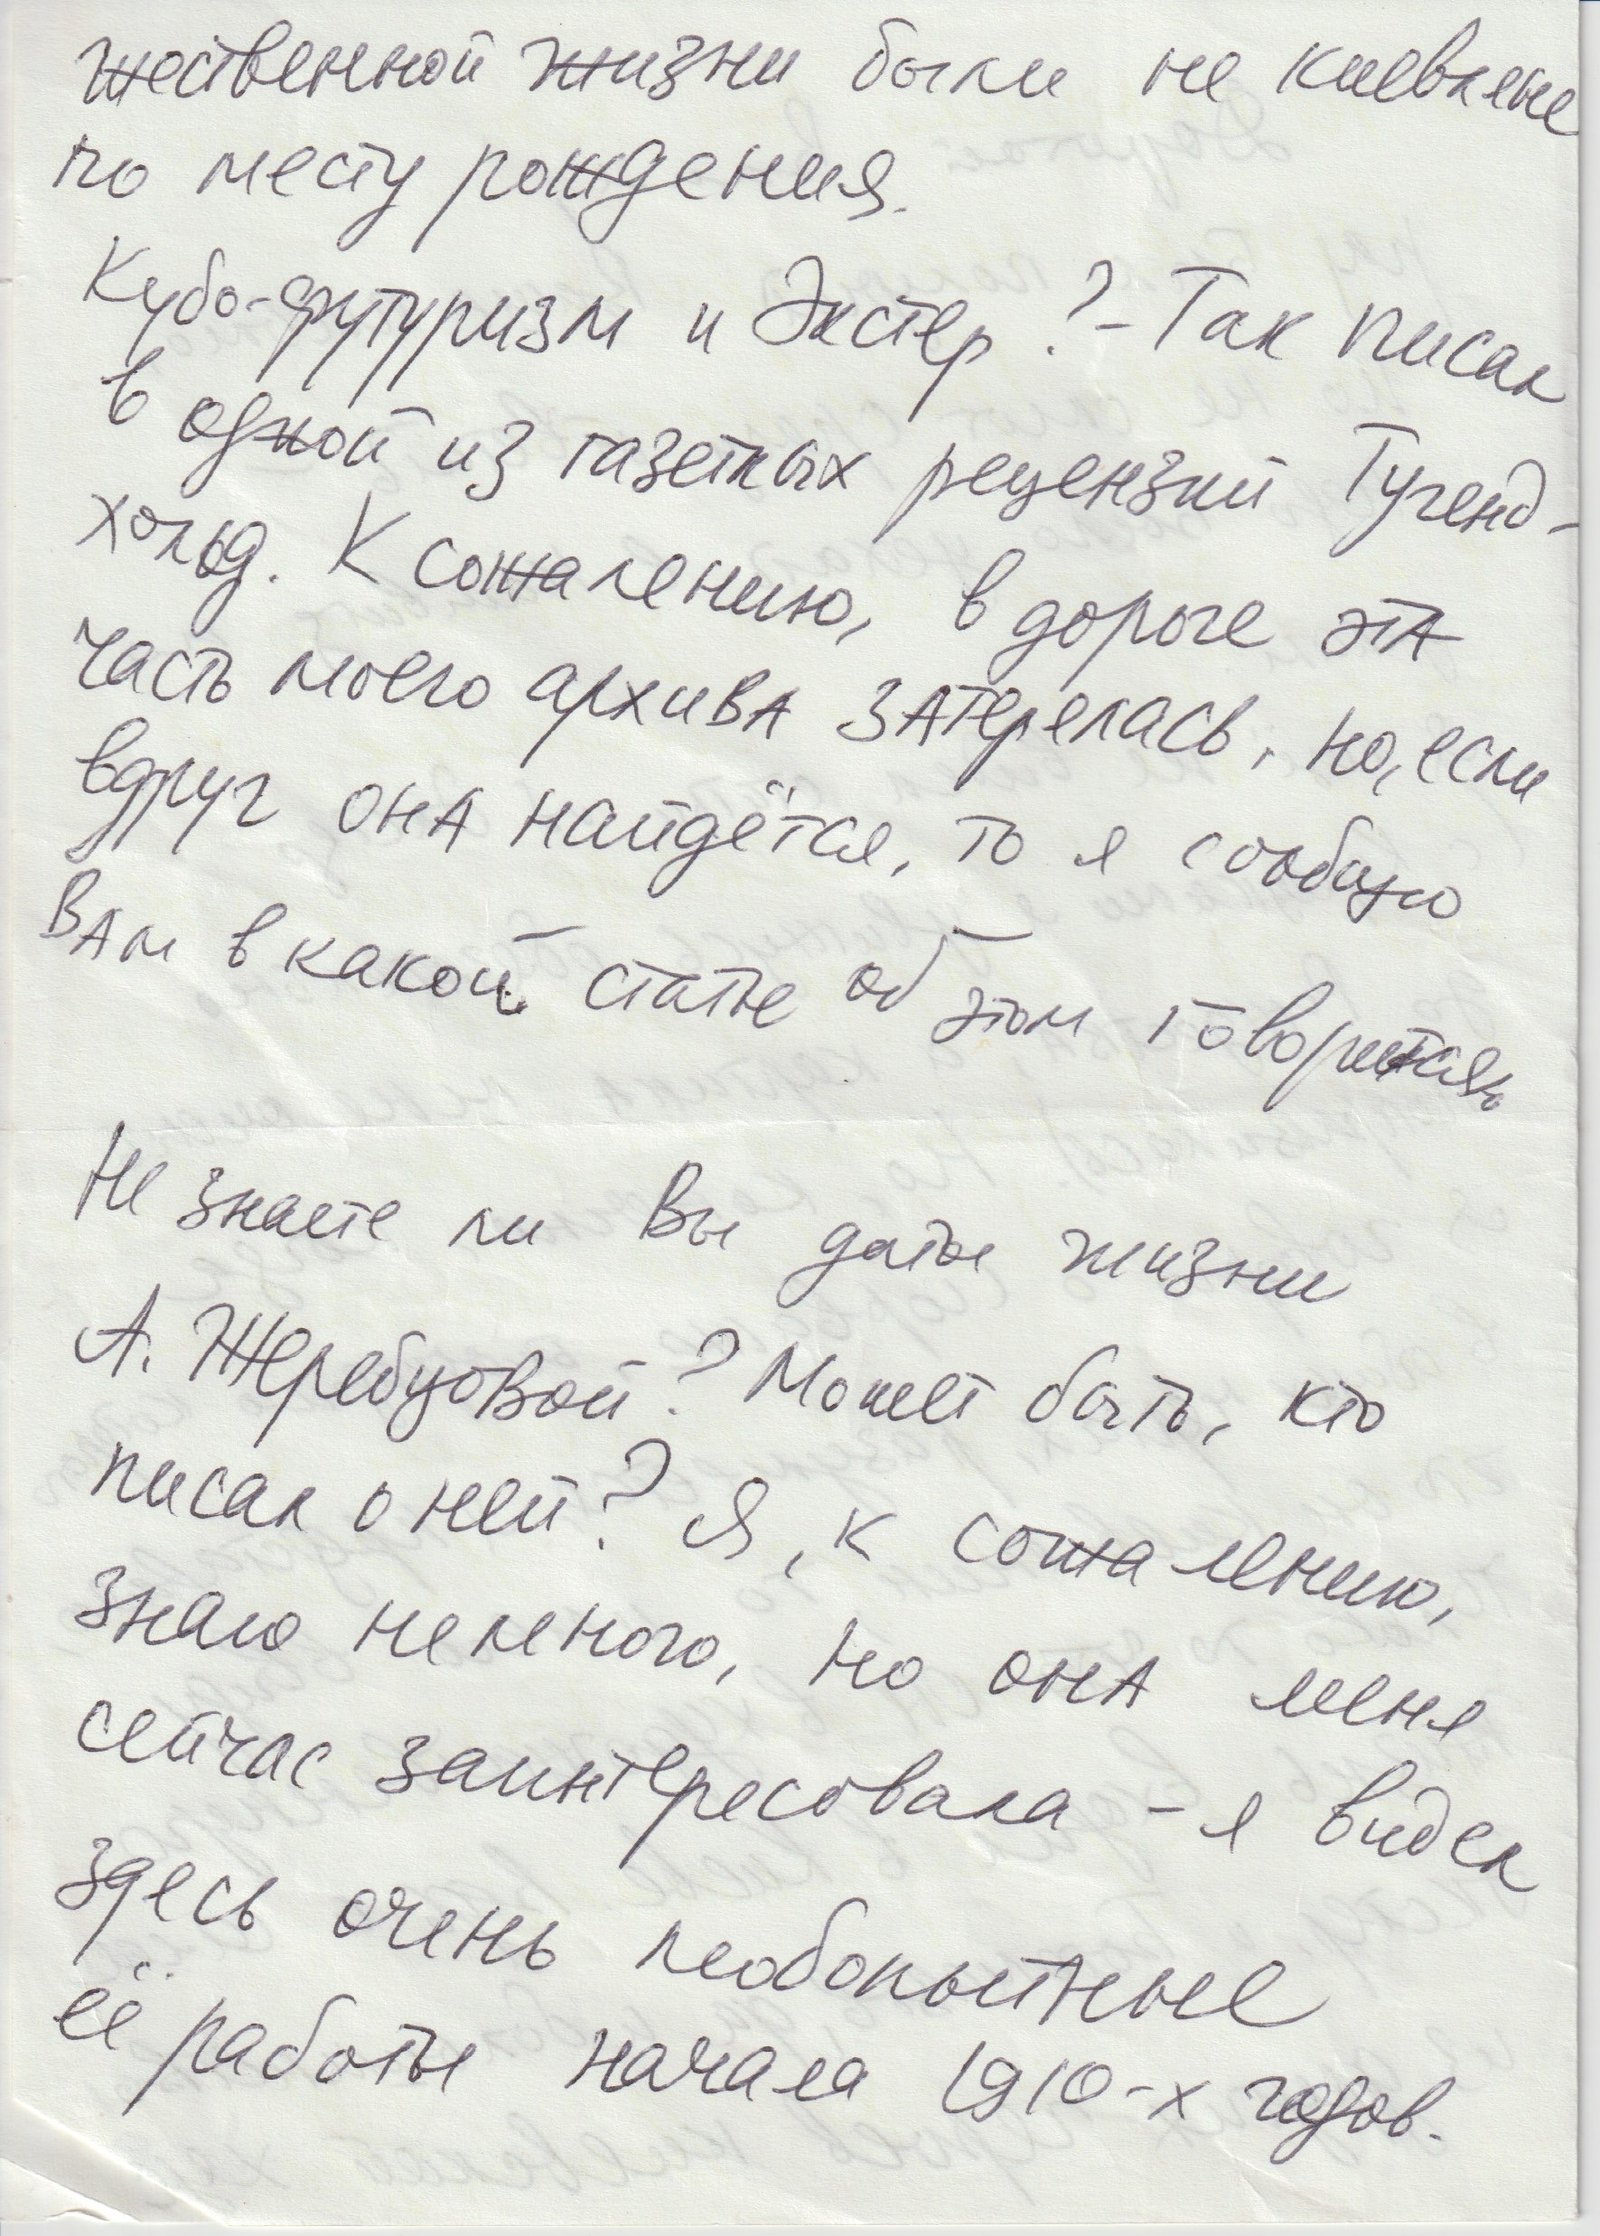 жественной жизни были не киевляне
по месту рождения.
Кубо-футуризм и Экстер? - Так писал
в одной из газетных рецензий Тугенд-
хольд. К сожалению, в дороге эта
часть моего архива затерялась, но, если
вдруг она найдётся, то я сообщу
Вам в какой статье об этом говорится.
Не знаете ли Вы даты жизни
А. Жеребцовой? Может быть, кто
писал о ней? Я, к сожалению,
знаю немного, но она меня
сейчас заинтересовала - я видел
здесь очень любопытные
её работы начала 1910-х годов.